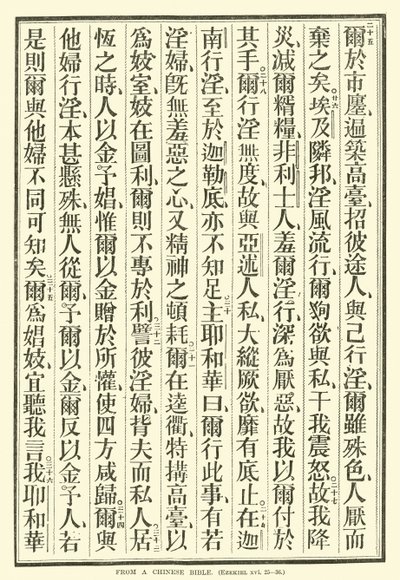 二十五爾於市廛、遍築高臺、招彼途人、與己行淫、爾雖殊色、人厭而
棄之矣、二十六埃及隣邦、淫風流行、爾狥欲與私、干我震怒、二十七故我降
災、減爾糈糧、非利士人、羞爾淫行、深爲厭惡、故我以爾付於
其手、二十八爾行淫無度、故與亞述人私、大縱厥欲、靡有底止、二十九在迦
南行淫、至於迦勒底、亦不知足、三十主耶和華曰、爾行此事、有若
淫婦、旣無羞惡之心、又精神之頓耗、三十一爾在逵衢、特搆高臺、以
爲妓室、妓在圖利、爾則不專於利、三十二譬彼淫婦、背夫而私人、三十三居
恆之時、人以金予娼、惟爾以金贈於所懽、使四方咸歸、三十四爾與
他婦行淫、本甚懸殊、無人從爾、予爾以金、爾反以金予人、若
是則爾與他婦不同可知矣、三十五爾爲娼妓、宜聽我言、三十六我耶和華
FROM A CHINESE BIBLE. (EZEKIEL xvi. 25-36.)